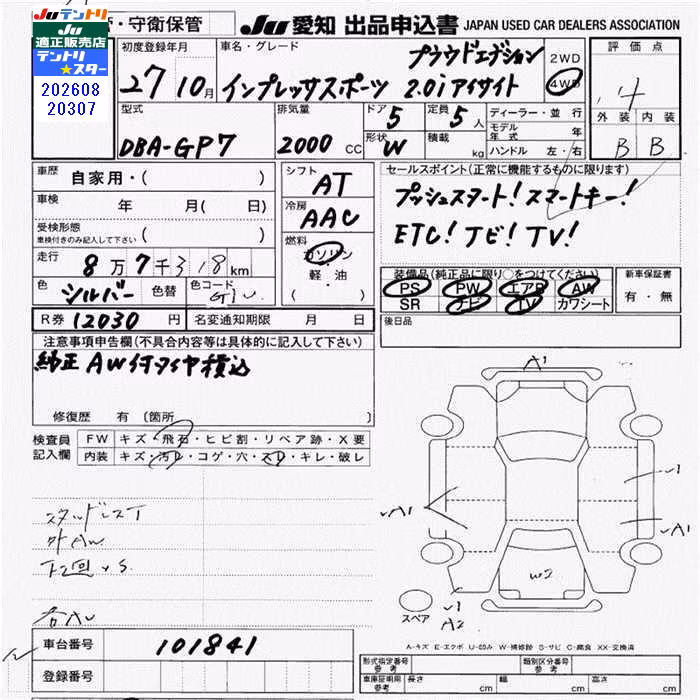 ・守衛保管 Ju 愛知 出品申込書 JAPAN USED CAR DEALERS ASSOCIATION
Juテントリ
Ju
適正販売店
テントリ
★スター
202608
20307
初度登録年月 車名・グレード 2WD 評価点
プラウドエディション
27 10月 インプレッサスポーツ 2.0iアイサイト 4WD 4
型式 排気量 ドア 定員 ディーラー・並行 外装 内装
DBA-GP7 2000 CC 5 5人 モデル年式 年
形状 W 積載 kg ハンドル 左・右 B B
車歴 自家用・( ) シフト AT セールスポイント(正常に機能するものに限り)
車検 年 月( 日) 冷房 AAC プッシュスタート!スマートキー!
受検形態 ( ) ETC!ナビ!TV!
車検付きのみ記入して下さい
燃料
走行 8万7千318km ガソリン 装備品(純正品に限り○をつけてください) 新車保証書
軽・油 PS PW エアB AW 有・無
色 シルバー 色替 色コード G1U ( ) SR ナビ TV カワシート
R券 12030円 名変通知期限 月 日 後日品
注意事項申告欄(不具合内容等は具体的に記入して下さい)
純正AW付タイヤ積込
修復歴 有 〔箇所 〕
検査員 FW キズ・飛石・ヒビ割・リペア跡・X要
記入欄 内装 キズ・汚レ・コゲ・穴・スレ・キレ・破レ
A1
A1 A1
W2
スペア
A2
スタッドレスT
外AW
A-キズ E-エクボ U-凹み W-補修跡 S-サビ C-腐食 XX-交換済
車台番号 101841
登録番号
形式指定番号 参考 類別区分番号 参考
車庫証明用 参考 長さ cm 幅 cm 高さ cm